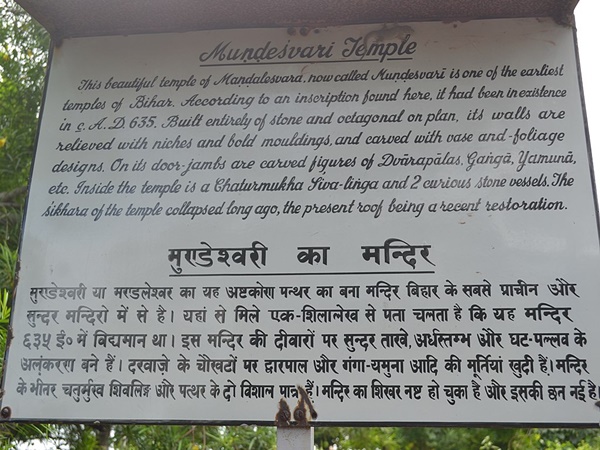 Muṇḍeśvarī Temple
This beautiful temple of Maṇḍaleśvara, now called Muṇḍeśvarī is one of the earliest
temples of Bihar. According to an inscription found here, it had been in existence
in c. A.D. 635. Built entirely of stone and octagonal on plan, its walls are
relieved with niches and bold mouldings, and carved with vase-and-foliage
designs. On its door-jambs are carved figures of Dvārapālas, Gaṅgā, Yamunā,
etc. Inside the temple is a Chaturmukha Śiva-liṅga and 2 curious stone vessels. The
śikhara of the temple collapsed long ago, the present roof being a recent restoration.
मुण्डेश्वरी का मन्दिर
मुण्डेश्वरी या मण्डलेश्वर का यह अष्टकोण पत्थर का बना मन्दिर बिहार के सबसे प्राचीन और
सुन्दर मन्दिरो में से है। यहां से मिले एक-शिलालेख से पता चलता है कि यह मन्दिर
६३५ ई० में विद्यमान था। इस मन्दिर की दीवारों पर सुन्दर ताखे, अर्धस्तम्भ और घट-पल्लव के
अलंकरण बने हैं। दरवाजे के चौखटों पर द्वारपाल और गंगा-यमुना आदि की मूर्तियां खुदी हैं। मन्दिर
के भीतर चतुर्मुख शिवलिङ्ग और पत्थर के दो विशाल पात्र हैं। मन्दिर का शिखर नष्ट हो चुका है और इसकी छत नई है।